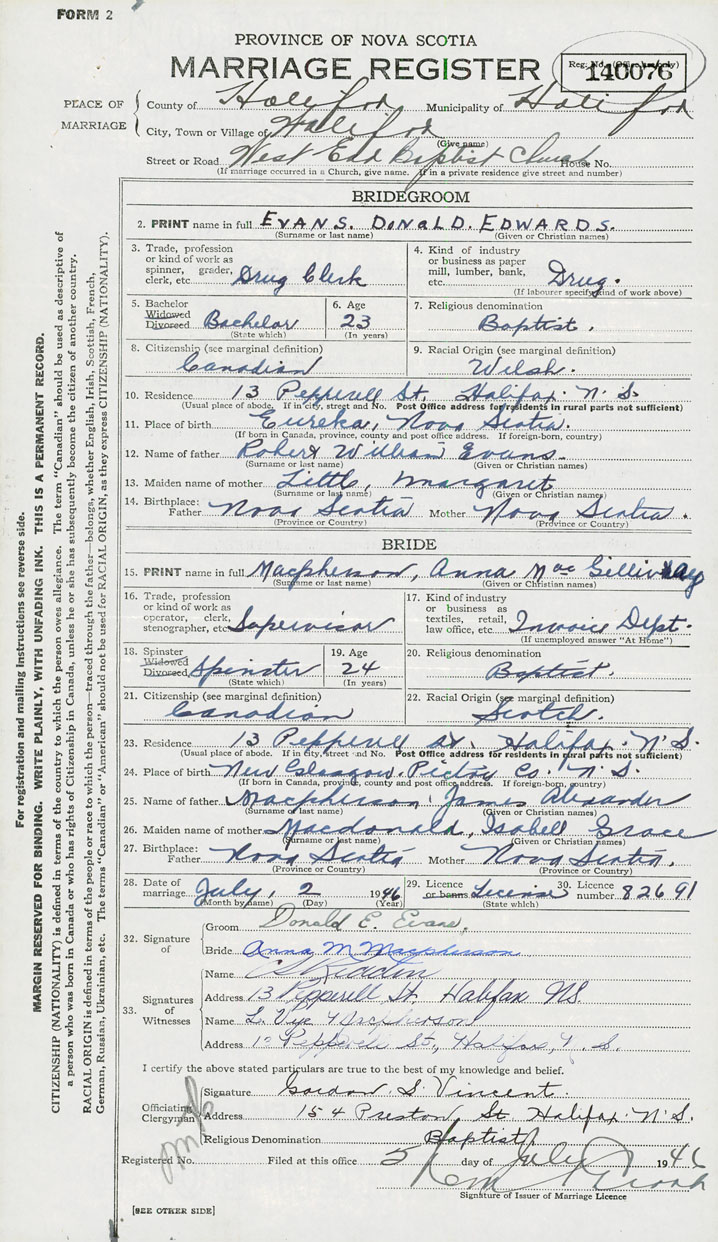 FORM 2
PROVINCE OF NOVA SCOTIA
MARRIAGE REGISTER
Reg. No. (Office use only)
140076
PLACE OF MARRIAGE
County of Halifax Municipality of Halifax
City, Town or Village of Halifax
(Give name)
Street or Road West End Baptist Church House No.
(If marriage occurred in a Church, give name. If in a private residence give street and number)
BRIDEGROOM
2. PRINT name in full EVANS. DONALD. EDWARDS.
(Surname or last name) (Given or Christian names)
3. Trade, profession or kind of work as spinner, grader, clerk, etc. Drug Clerk
4. Kind of industry or business as paper mill, lumber, bank, etc. Drug.
(If labourer specify kind of work above)
5. Bachelor Widowed Divorced Bachelor
(State which)
6. Age 23
(In years)
7. Religious denomination
Baptist.
8. Citizenship (see marginal definition)
Canadian
9. Racial Origin (see marginal definition)
Welsh.
10. Residence 13 Pepperell St. Halifax. N.S.
(Usual place of abode. If in city, street and No. Post Office address for residents in rural parts not sufficient)
11. Place of birth Eureka, Nova Scotia.
(If born in Canada, province, county and post office address. If foreign-born, country)
12. Name of father Robert William Evans.
(Surname or last name) (Given or Christian names)
13. Maiden name of mother Little, Margaret
(Surname or last name) (Given or Christian names)
14. Birthplace: Father Nova Scotia Mother Nova Scotia.
(Province or Country) (Province or Country)
BRIDE
15. PRINT name in full Macpherson, Anna MacGillivray
(Surname or last name) (Given or Christian names)
16. Trade, profession or kind of work as operator, clerk, stenographer, etc. Supervisor
17. Kind of industry or business as textiles, retail, law office, etc. Invoice Dept.
(If unemployed answer "At Home")
18. Spinster Widowed Divorced Spinster
(State which)
19. Age 24
(In years)
20. Religious denomination
Baptist.
21. Citizenship (see marginal definition)
Canadian
22. Racial Origin (see marginal definition)
Scotch.
23. Residence 13 Pepperell St. Halifax. N.S.
(Usual place of abode. If in city, street and No. Post Office address for residents in rural parts not sufficient)
24. Place of birth New Glasgow. Pictou Co. N.S.
(If born in Canada, province, county and post office address. If foreign-born, country)
25. Name of father Macpherson, James Alexander
(Surname or last name) (Given or Christian names)
26. Maiden name of mother Macdonald, Isabell Grace
(Surname or last name) (Given or Christian names)
27. Birthplace: Father Nova Scotia Mother Nova Scotia.
(Province or Country) (Province or Country)
28. Date of marriage July, 2 1946
(Month by name) (Day) (Year)
29. Licence or banns License
(State which)
30. Licence number 82691
32. Signature of
Groom Donald E. Evans,
Bride Anna M Macpherson
33. Signatures of Witnesses
Name
Address 13 Pepperell St. Halifax NS.
Name L. Macpherson
Address Pepperell St., Halifax, N.S.
I certify the above stated particulars are true to the best of my knowledge and belief.
Officiating Clergyman
Signature Gordon S. Vincent.
Address 154 Preston St. Halifax. N.S.
Religious Denomination Baptist
Registered No. Filed at this office 5 day of July 1946
Signature of Issuer of Marriage Licence
[SEE OTHER SIDE]
For registration and mailing Instructions see reverse side.
MARGIN RESERVED FOR BINDING. WRITE PLAINLY, WITH UNFADING INK. THIS IS A PERMANENT RECORD.
CITIZENSHIP (NATIONALITY) is defined in terms of the country to which the person owes allegiance. The term "Canadian" should be used as descriptive of
a person who was born in Canada or who has rights of Citizenship in Canada, unless he or she has subsequently become the citizen of another country.
RACIAL ORIGIN is defined in terms of the people or race to which the person—traced through the father—belongs, whether English, Irish, Scottish, French,
German, Russian, Ukrainian, etc. The terms "Canadian" or "American" should not be used for RACIAL ORIGIN, as they express CITIZENSHIP (NATIONALITY).